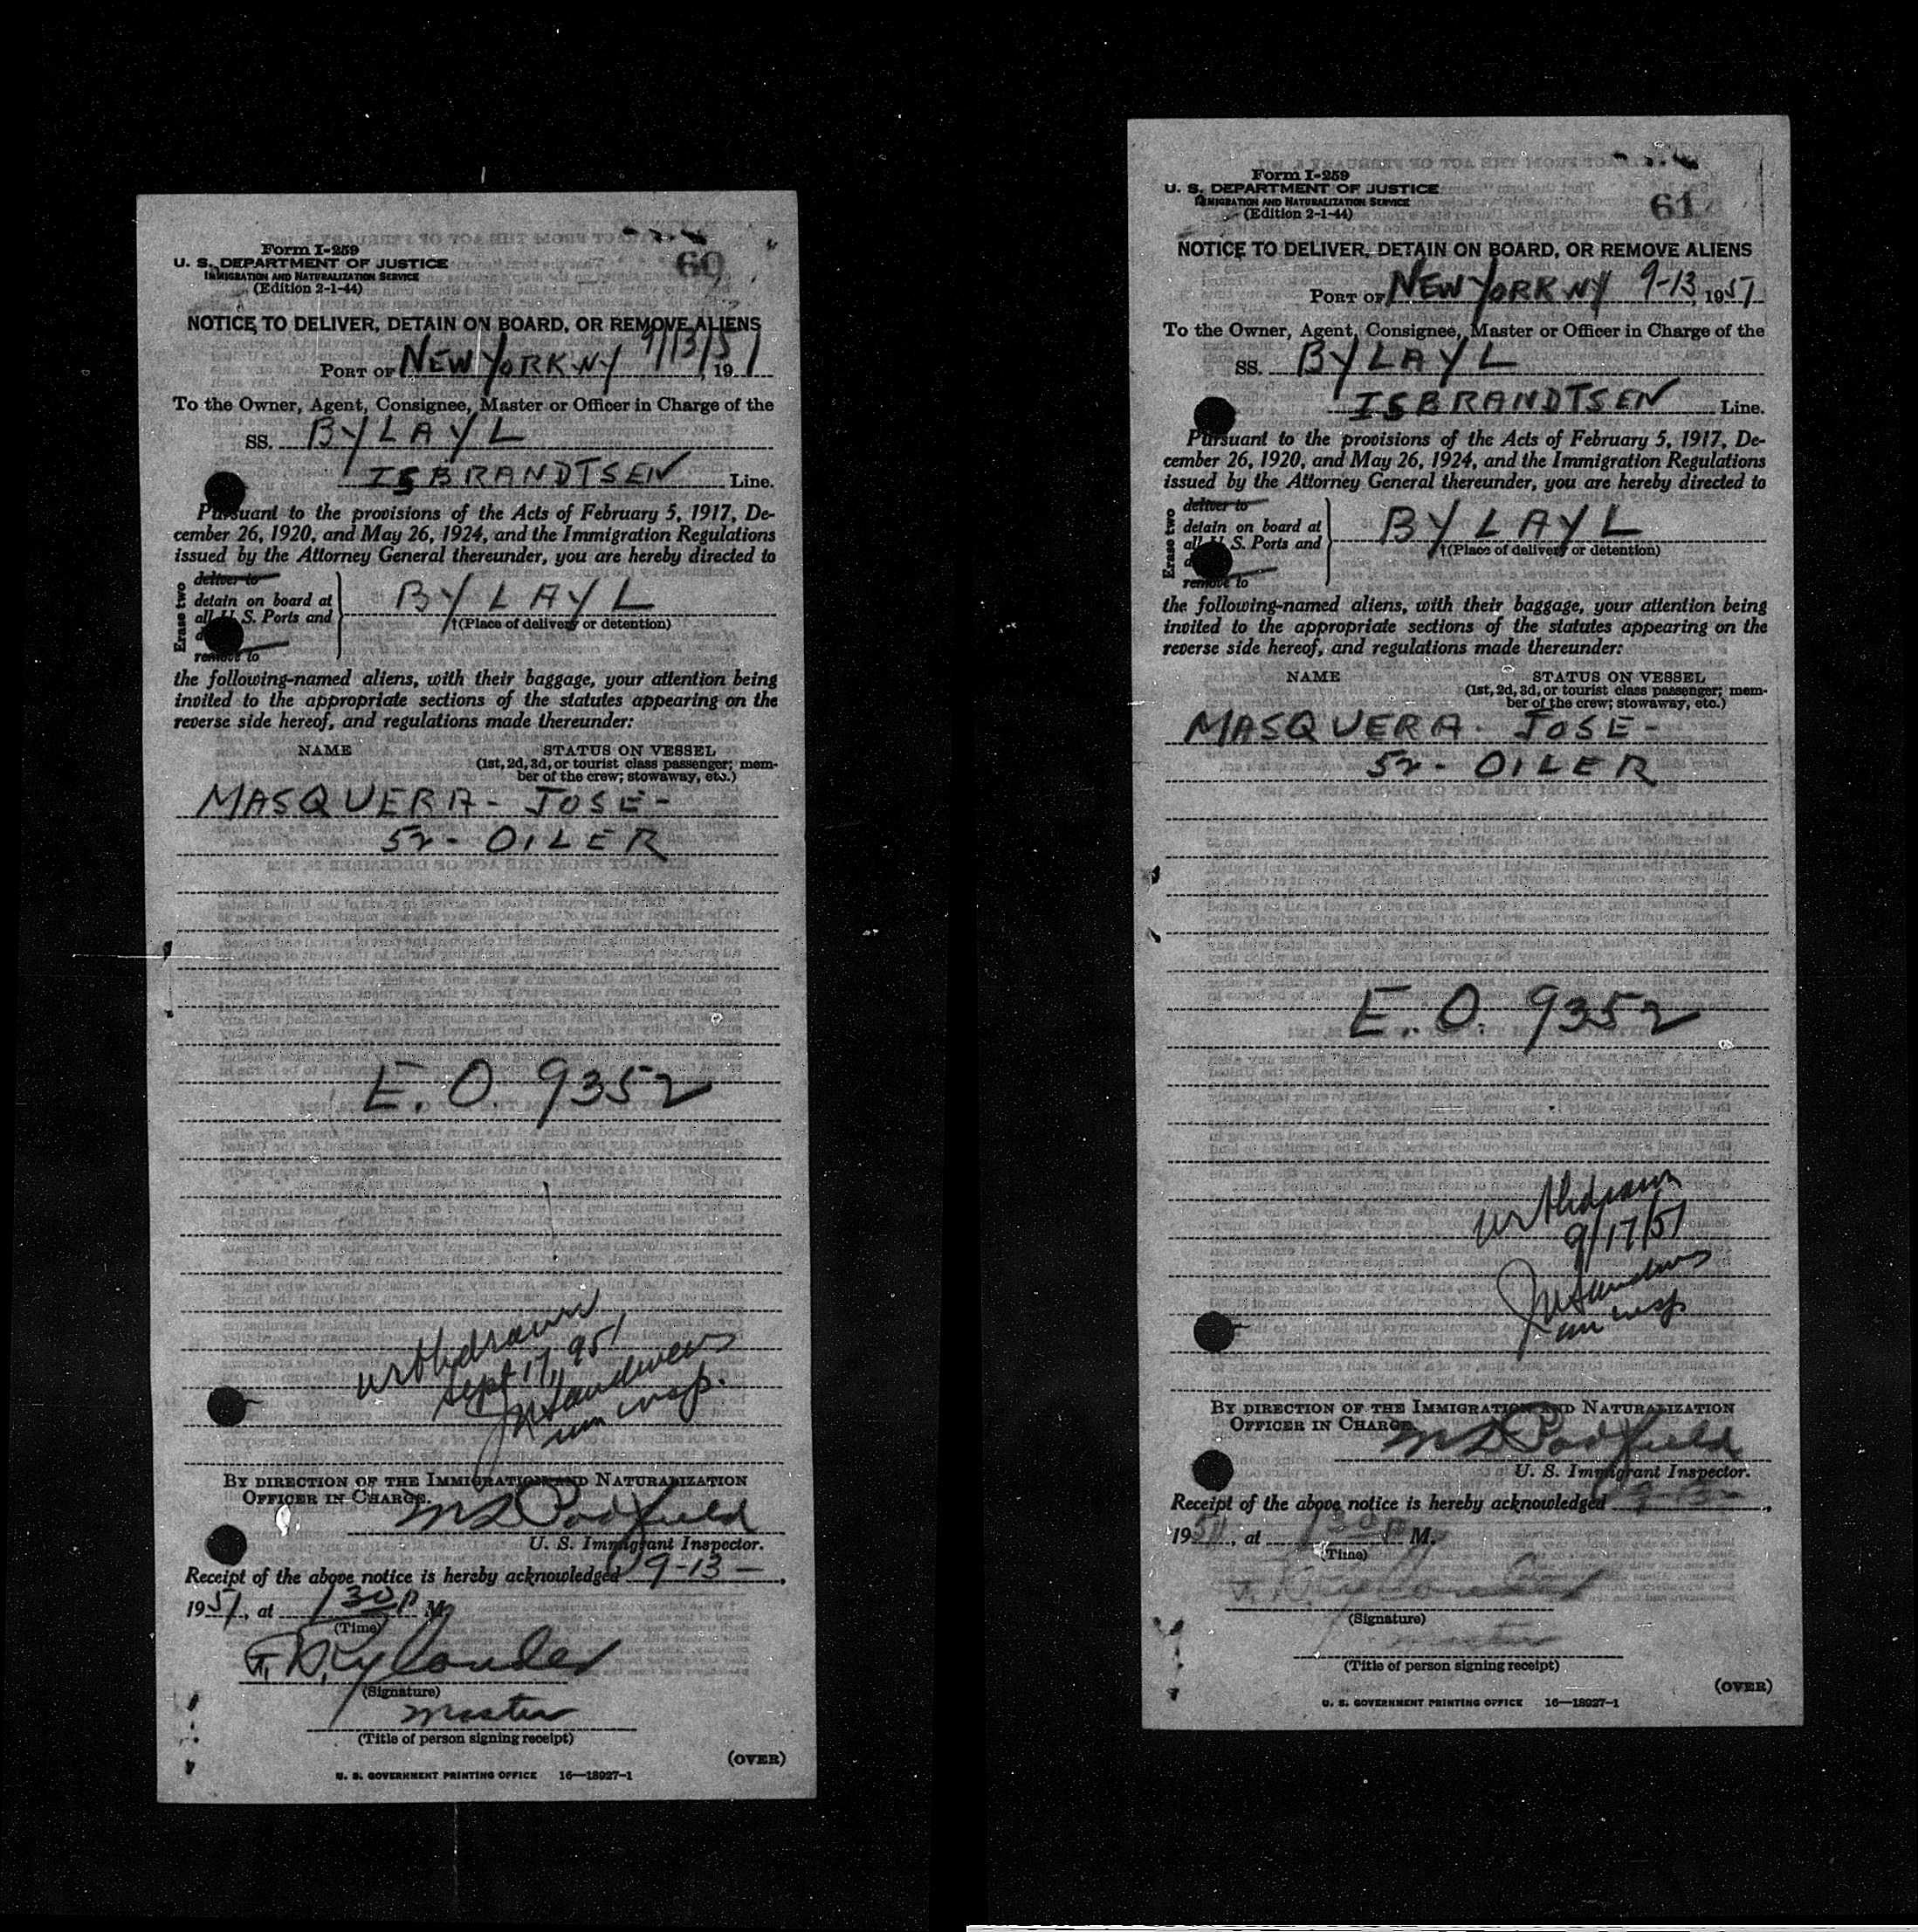 Form I-259
U. S. DEPARTMENT OF JUSTICE
IMMIGRATION AND NATURALIZATION SERVICE
(Edition 2-1-44)
60
NOTICE TO DELIVER, DETAIN ON BOARD, OR REMOVE ALIENS
PORT OF NEW YORK NY 9/13/51, 19
To the Owner, Agent, Consignee, Master or Officer in Charge of the
SS. BYLAYL
ISBRANDTSEN Line.
Pursuant to the provisions of the Acts of February 5, 1917, De-
cember 26, 1920, and May 26, 1924, and the Immigration Regulations
issued by the Attorney General thereunder, you are hereby directed to
Erase two
deliver to
detain on board at
all U. S. Ports and
remove to
BYLAYL
†(Place of delivery or detention)
the following-named aliens, with their baggage, your attention being
invited to the appropriate sections of the statutes appearing on the
reverse side hereof, and regulations made thereunder:
NAME
STATUS ON VESSEL
(1st, 2d, 3d, or tourist class passenger; mem-
ber of the crew; stowaway, etc.)
MASQUERA - JOSE -
52 - OILER
E. O. 9352
withdrawn
Sept 17, 951
imm insp.
BY DIRECTION OF THE IMMIGRATION AND NATURALIZATION
OFFICER IN CHARGE.
M L Padfield
U. S. Immigrant Inspector.
Receipt of the above notice is hereby acknowledged 9-13 -,
1951, at 1 30 P M.
(Time)
F. Rylander
(Signature)
Master
(Title of person signing receipt)
(OVER)
U. S. GOVERNMENT PRINTING OFFICE 16—18927-1
Form I-259
U. S. DEPARTMENT OF JUSTICE
IMMIGRATION AND NATURALIZATION SERVICE
(Edition 2-1-44)
61
NOTICE TO DELIVER, DETAIN ON BOARD, OR REMOVE ALIENS
PORT OF NEW YORK NY 9-13 1951
To the Owner, Agent, Consignee, Master or Officer in Charge of the
SS. BYLAYL
ISBRANDTSEN Line.
Pursuant to the provisions of the Acts of February 5, 1917, De-
cember 26, 1920, and May 26, 1924, and the Immigration Regulations
issued by the Attorney General thereunder, you are hereby directed to
Erase two
deliver to
detain on board at
all U. S. Ports and
remove to
BYLAYL
†(Place of delivery or detention)
the following-named aliens, with their baggage, your attention being
invited to the appropriate sections of the statutes appearing on the
reverse side hereof, and regulations made thereunder:
NAME
STATUS ON VESSEL
(1st, 2d, 3d, or tourist class passenger; mem-
ber of the crew; stowaway, etc.)
MASQUERA - JOSE -
52 - OILER
E. O. 9352
withdrawn
9/17/51
imm insp
BY DIRECTION OF THE IMMIGRATION AND NATURALIZATION
OFFICER IN CHARGE.
M L Padfield
U. S. Immigrant Inspector.
Receipt of the above notice is hereby acknowledged 9-13-,
1951, at 1 30 P M.
(Time)
F. Rylander
(Signature)
Master
(Title of person signing receipt)
(OVER)
U. S. GOVERNMENT PRINTING OFFICE 16—18927-1